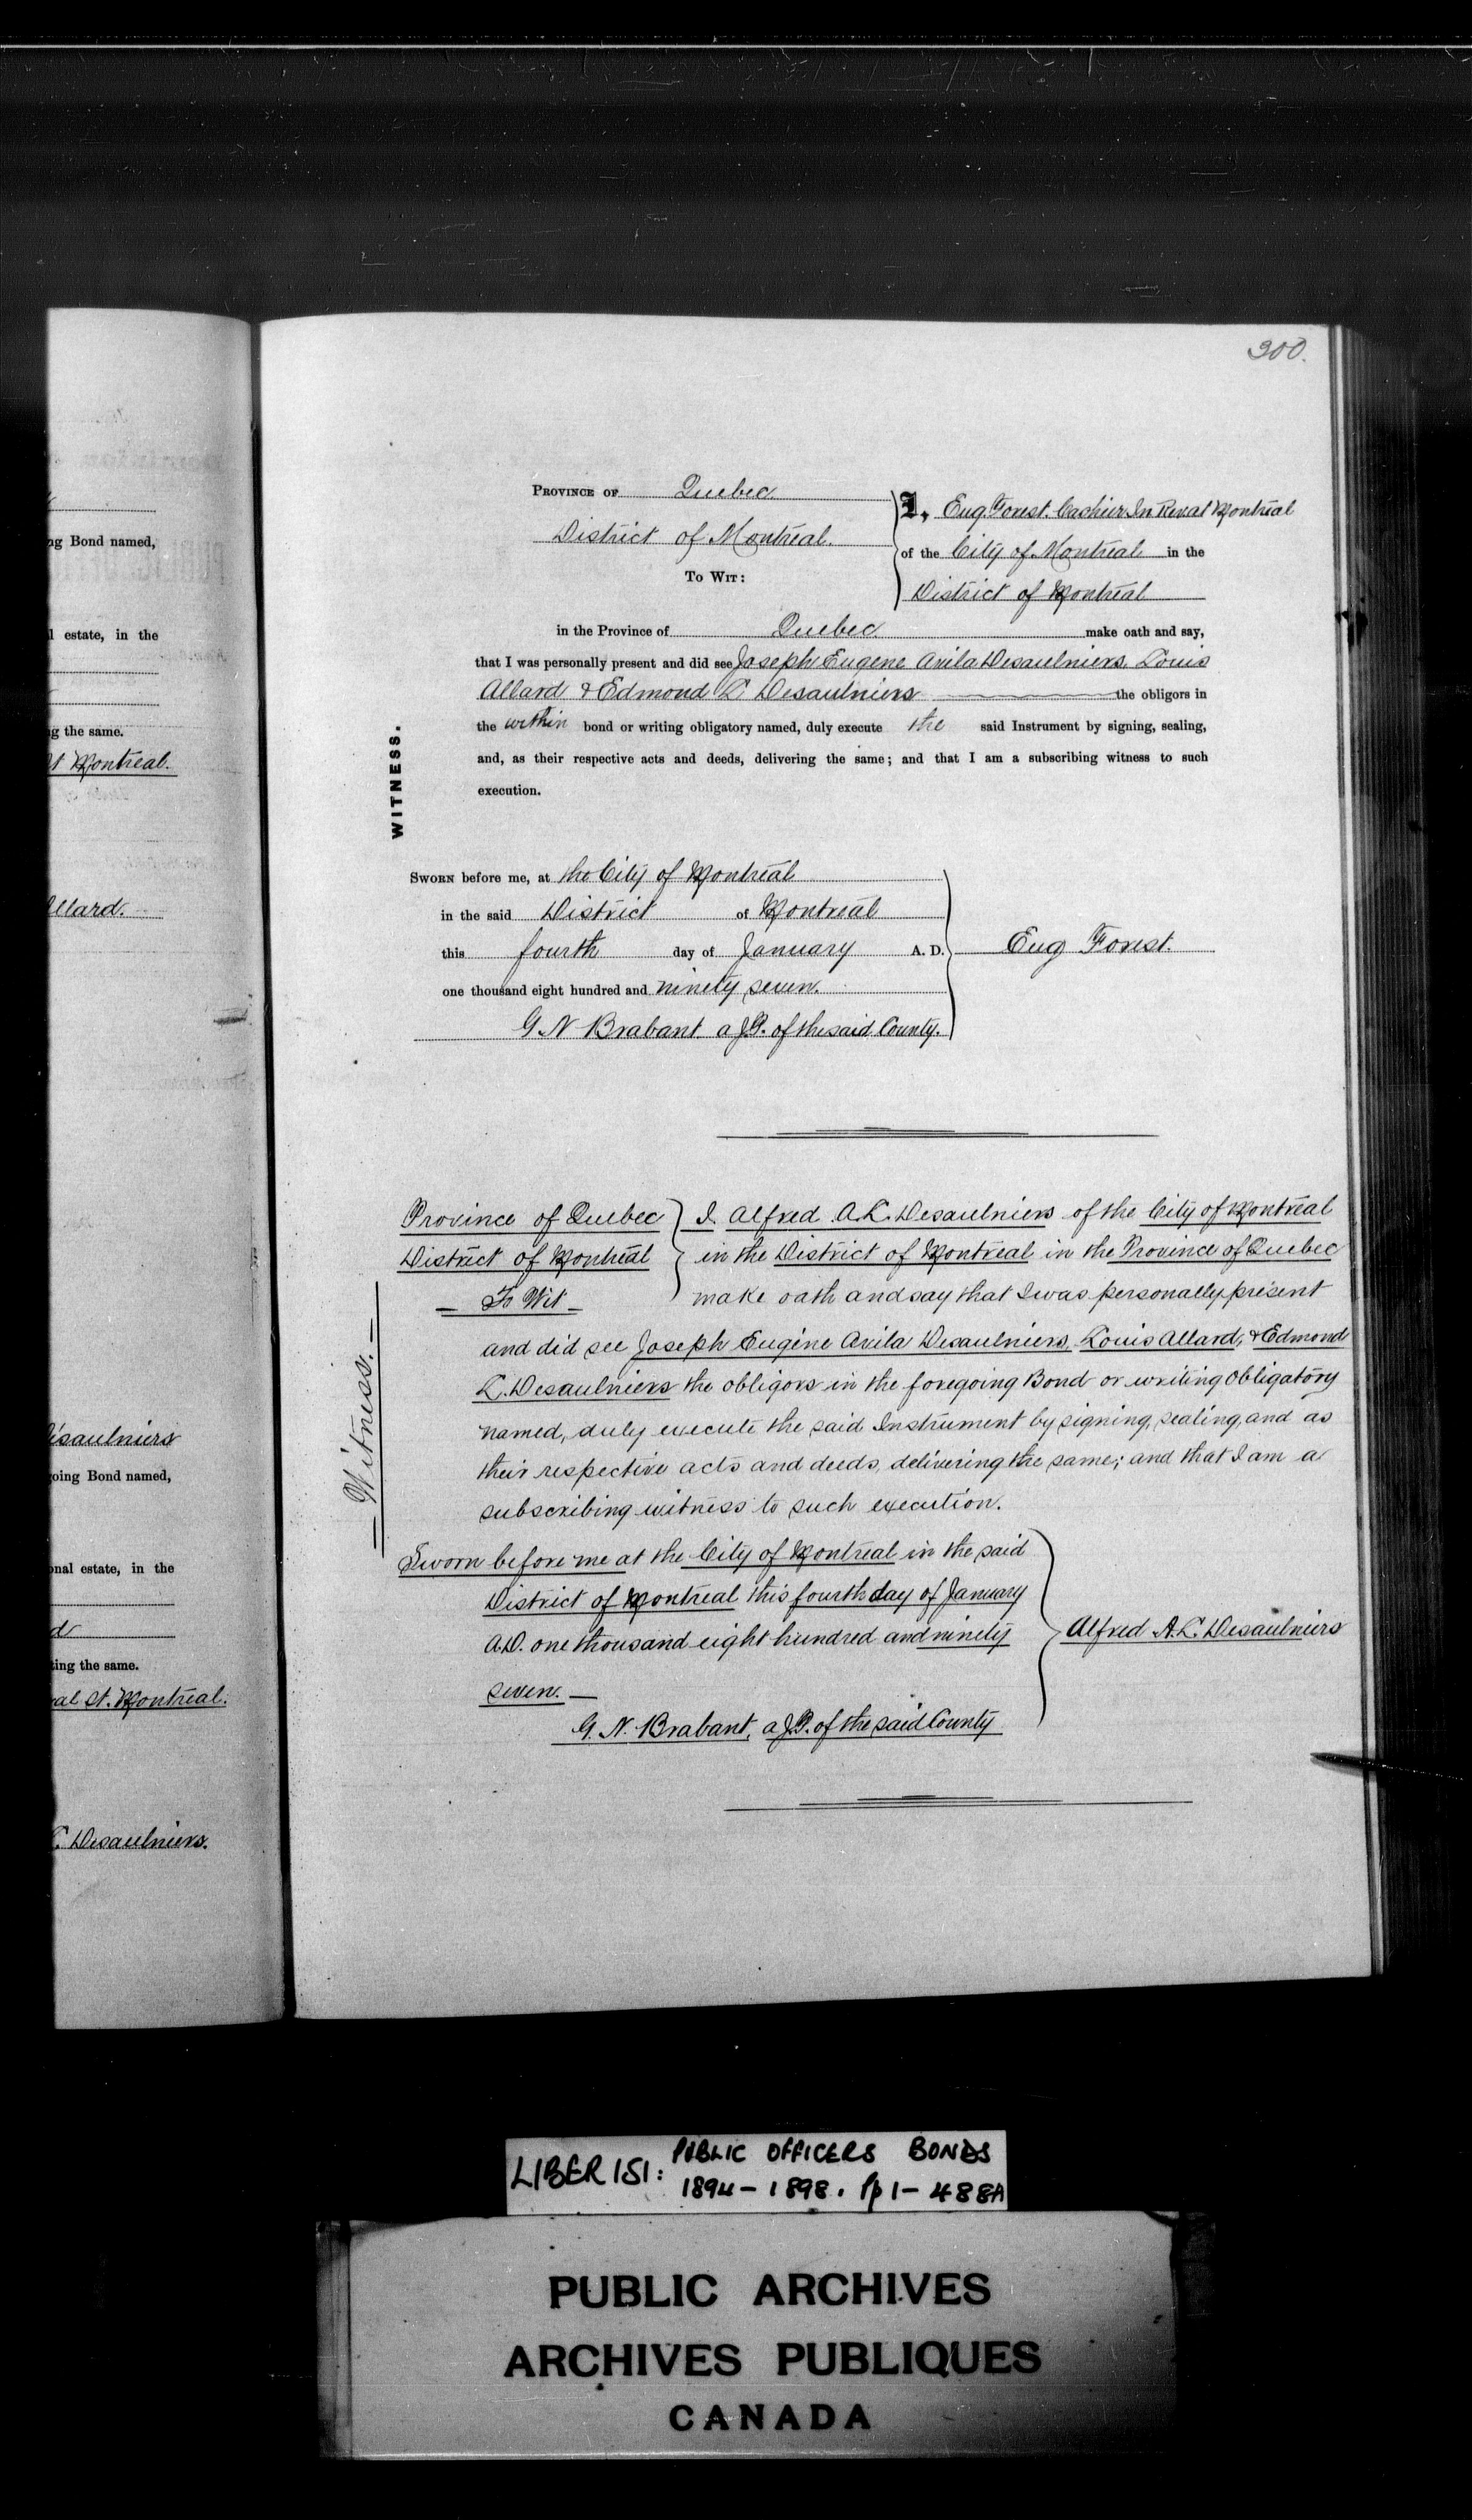 300.
ng Bond named,
l estate, in the
g the same.
St Montreal.
Allard.
Desaulniers
oing Bond named,
onal estate, in the
d
ting the same.
al St. Montreal.
L. Desaulniers.
PROVINCE OF Quebec
District of Montreal.
TO WIT:
I, Eug. Forest. Cashier In Montreal
of the City of Montreal in the
District of Montreal
in the Province of Quebec make oath and say,
that I was personally present and did see Joseph Eugene Avila Desaulniers, Louis
Allard & Edmond L Desaulniers the obligors in
the within bond or writing obligatory named, duly execute the said Instrument by signing, sealing,
and, as their respective acts and deeds, delivering the same; and that I am a subscribing witness to such
execution.
WITNESS.
SWORN before me, at the City of Montreal
in the said District of Montreal
this fourth day of January A. D.
one thousand eight hundred and ninety seven.
G. N Brabant a J.P. of the said County.
Eug Forest.
Province of Quebec
District of Montreal
To Wit
I Alfred A. L. Desaulniers of the City of Montreal
in the District of Montreal in the Province of Quebec
make oath and say that I was personally present
and did see Joseph Eugène Avila Desaulniers, Louis Allard, & Edmond
L. Desaulniers the obligors in the foregoing Bond or writing obligatory
named, duly execute the said Instrument by signing, sealing, and as
their respective acts and deeds, delivering the same; and that I am a
subscribing witness to such execution.
Witness.
Sworn before me at the City of Montreal in the said
District of Montreal this fourth day of January
A.D. one thousand eight hundred and ninety
seven.
G. N. Brabant, a J.P. of the said County
Alfred A. L. Desaulniers
LIBER 151: PUBLIC OFFICERS BONDS
1894-1898. Pp 1-488A
PUBLIC ARCHIVES
ARCHIVES PUBLIQUES
CANADA